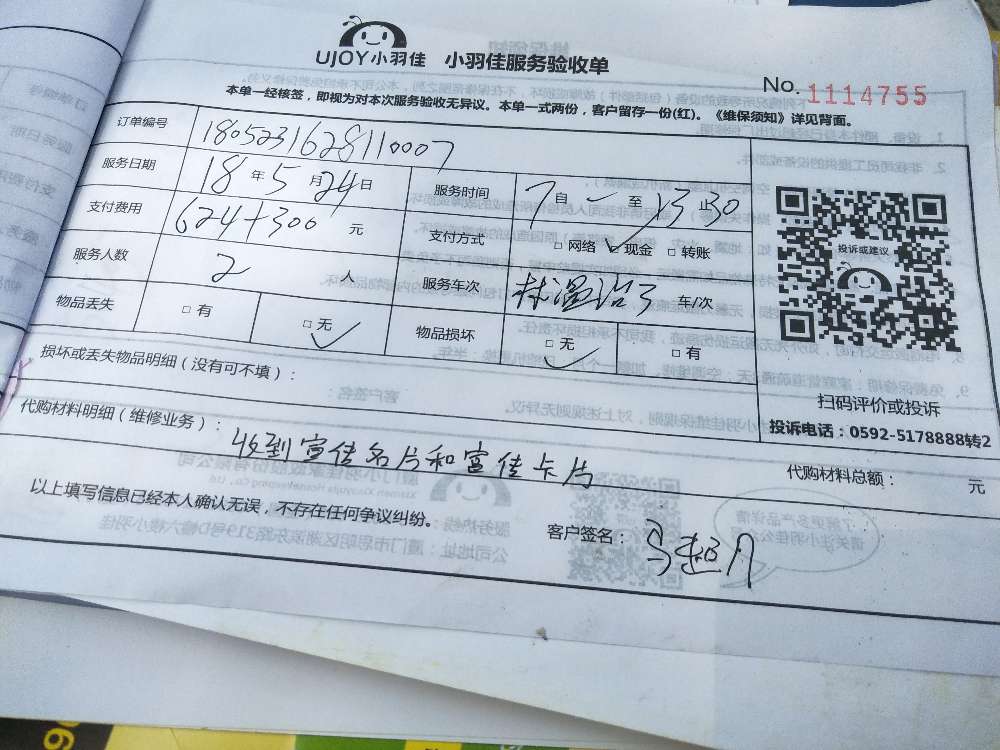 UJOY小羽佳 小羽佳服务验收单
No. 1114755
本单一经核签，即视为对本次服务验收无异议。本单一式两份，客户留存一份(红)。《维保须知》详见背面。
订单编号 1805231628110007
服务日期 18 年 5 月 24 日 服务时间 7 自 一 至 13 止30
支付费用 624+300 元 支付方式 □ 网络 ☑ 现金 □ 转账
服务人数 2 人 服务车次 车/次
物品丢失 □ 有 □ 无 ✓ 物品损坏 □ 无 ✓ □ 有
损坏或丢失物品明细（没有可不填）：
代购材料明细（维修业务）： 收到宣传名片和宣传卡片
代购材料总额： 元
以上填写信息已经本人确认无误，不存在任何争议纠纷。
客户签名： 马超凡
投诉或建议
扫码评价或投诉
投诉电话：0592-5178888转2